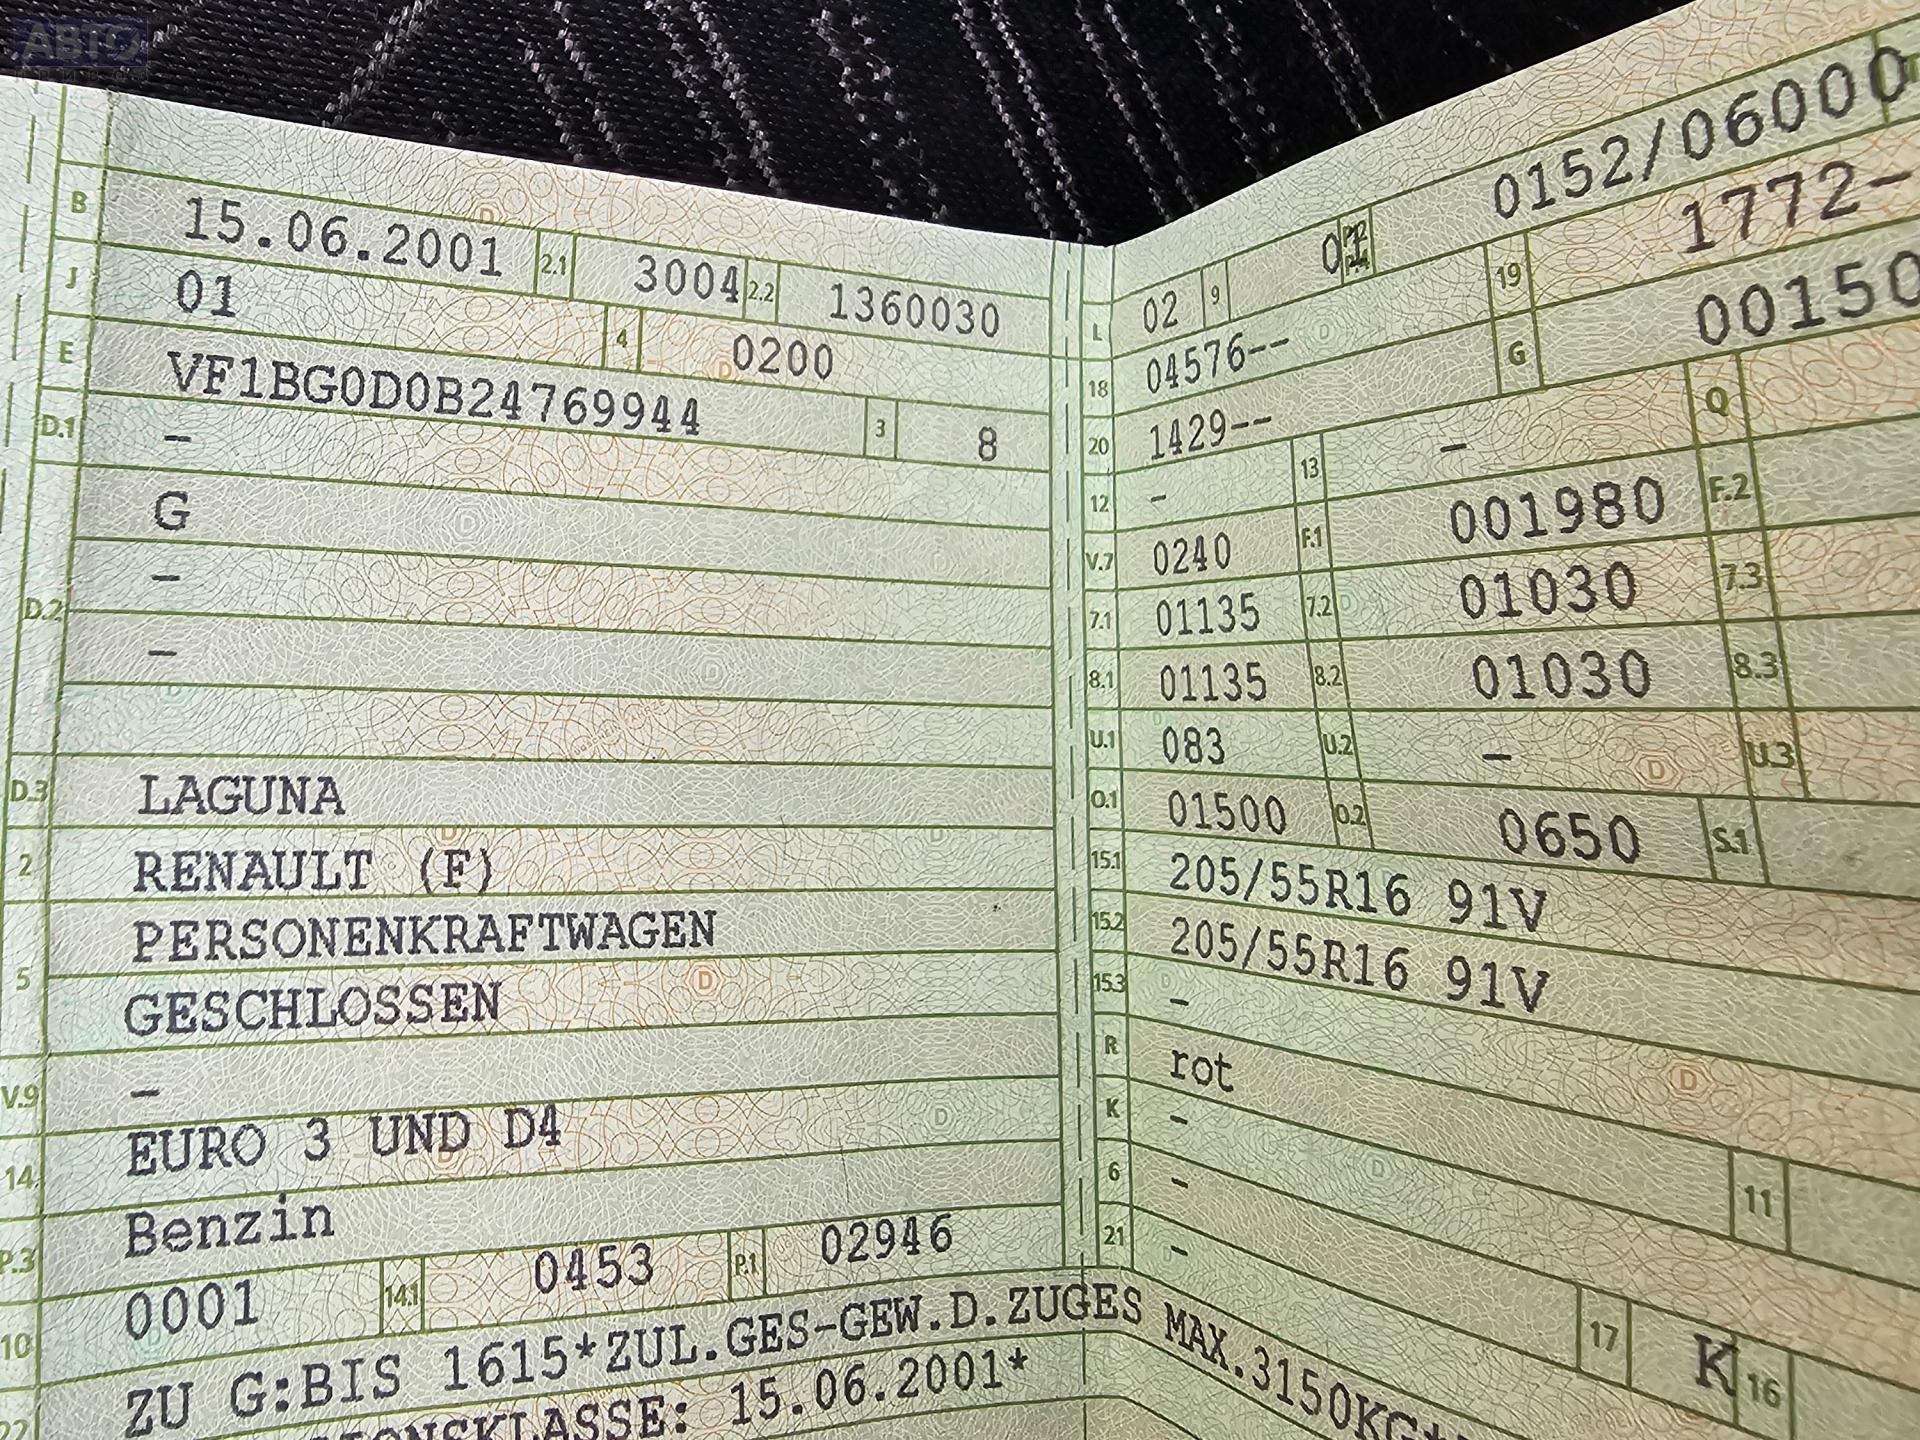 B 15.06.2001 2.1 3004 2.2 1360030
J 01 4 0200
E VF1BG0D0B24769944 3 8
D.1 -
G
D.2 -
-
D.3 LAGUNA
2 RENAULT (F)
PERSONENKRAFTWAGEN
5 GESCHLOSSEN
V.9 -
EURO 3 UND D4
14
P.3 Benzin
10 0001 14.1 0453 P.1 02946
22 ZU G:BIS 1615*ZUL.GES-GEW.D.ZUGES MAX.3150KG*
15.06.2001*
L 02 9 0152/06000
18 04576-- 19 1772-
20 1429-- G 00150
12 - 13 - Q
V.7 0240 F.1 001980 F.2
7.1 01135 7.2 01030 7.3
8.1 01135 8.2 01030 8.3
U.1 083 U.2 - U.3
O.1 01500 O.2 0650 S.1
15.1 205/55R16 91V
15.2 205/55R16 91V
15.3 -
R rot
K - 11
6 -
21 - 17 K 16
ABTO